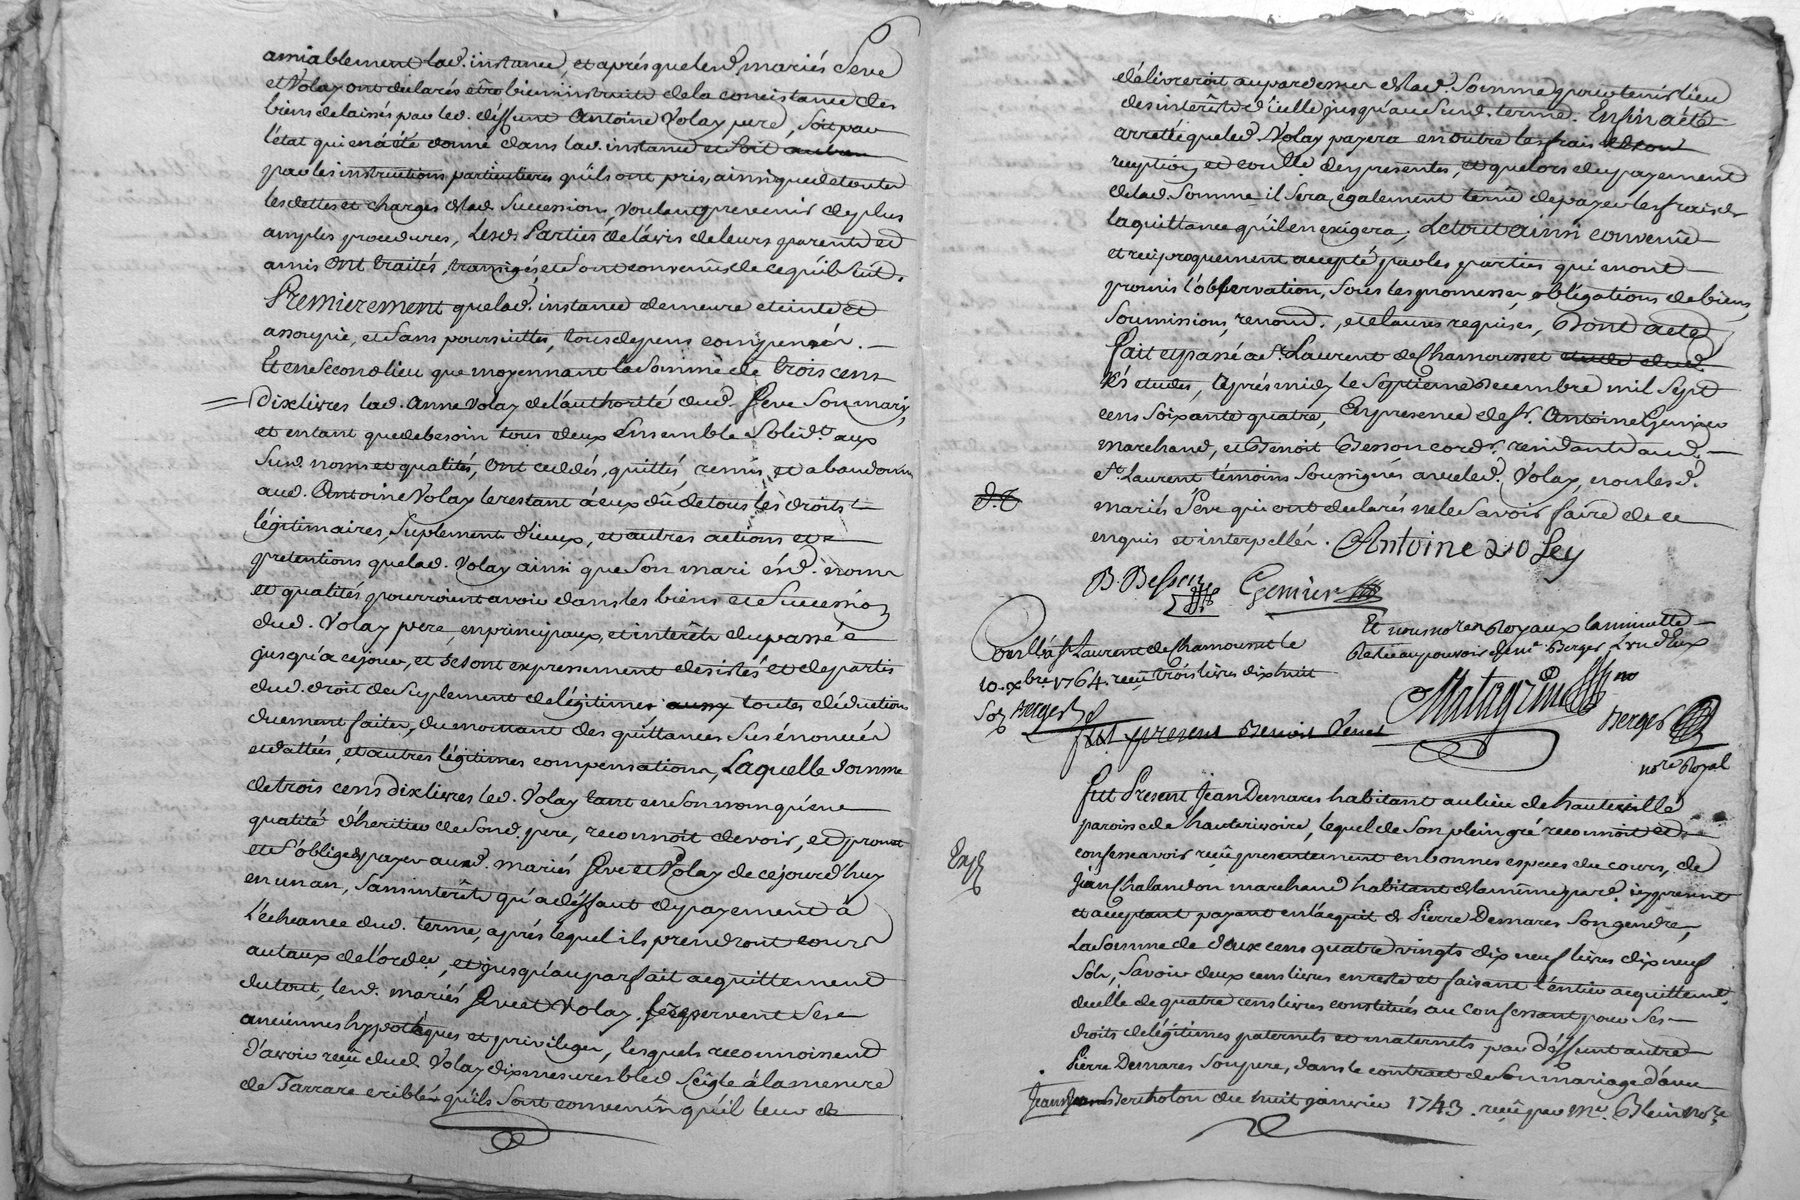 amiablement lad. instance, et aprés que lesd. mariés Seve
et Volay ont declarés être bien instruits de la concistance des
biens delaissés par led. déffunt Antoine Volay pere, soit par
l'état qui en a été donné dans lad. instance et soit
par les instructions particulieres qu'ils ont pris, ainsi que de toutes
les dettes et charges de lad. Succession, voulant prevenir de plus
amples procedures, Lesd. Parties de l'avis de leurs parents et
amis ont traités, transigés, et sont convenûs de ce qu'il suit.
Premierement que lad. instance demeure eteinte et
assoupie, et sans poursuittes, tous depens compensés.
Et en second lieu que moyennant la somme de trois cens
dix livres lad. Anne Volay de l'authorité dud. Seve son mary,
et en tant que de besoin tous deux ensemble solid.t aux
susd. noms et qualités, ont ceddés, quittés, remis, et abandonnés
aud. Antoine Volay le restant à eux dû de tous les droits
légitimaires, suplement d'iceux, et autres actions et
pretentions que lad. Volay ainsi que son mari ésd. noms
et qualités pourroient avoir dans les biens et succession
dud. Volay pere, en principaux, et interêts du passé
jusqu'à ce jour, et se sont expressement desistés et departis
dud. droit de suplement de légitime toutes déductions
duement faites, du montant des quittances sus énoncées
et dattées, et autres légitimes compensations, Laquelle somme
de trois cens dix livres led. Volay tant en son nom qu'en
qualité d'heritier de sond. pere, reconnoit devoir, et promet
et s'oblige de payer auxd. mariés Seve et Volay de ce jourd'huy
en un an, sans interêts qu'à déffaut de payement à
l'echeance dud. terme, aprés lequel ils prendront cours
au taux de l'ord.ce, et jusqu'au parfait acquittement
du tout, lesd. mariés Seve et Volay se reservent ses
anciennes hypoteques et privileges, lesquels reconnoissent
d'avoir reçû dud. Volay dix mesures bled seigle à la mesure
de Tarrare criblés qu'ils sont convenûs qu'il leur de
délivreroit au par dessus de lad. somme pour tenir lieu
des interêts d'icelle jusqu'au susd. terme. Enfin a été
arretté que led. Volay payera en outre les frais
reception, et coulle des presentes, et que lors du payement
de lad. somme il sera également tenû de payer les frais de
la quittance qu'il en exigera; Le tout ainsi convenû
et reciproquement accepté par les parties qui en ont
promis l'observation, sous les promesses, obligations de biens,
soumissions, renond., et clauses requises, Dont acte
fait et passé a St. Laurent de Chamousset
és etudes, aprés midy le septieme decembre mil sept
cens soixante quatre, En presence de Sr. Antoine Genier
marchand, et Benoit Besson cord.r residants aud.
St. Laurent témoins soussignés avec led. Volay, non lesd.
mariés Seve qui ont declarés ne le savoir faire de ce
enquis et interpellés. Antoine Voley
B. Besson Genier
Et nous no.res Royaux la minutte
Coullé à St. Laurent de Chamousset le
10. xbre. 1764. reçû trois livres dix huit
sols Berger
Matagrin no.re
Berger
no.re Royal
fut present Benoit
fut Present Jean Demares habitant au lieu de hauteville
paroisse de hauterivoire, lequel de son plein gré reconnoit et
confesse avoir reçû presentement en bonnes especes du cours, de
Jean Chalandon marchand habitant de la même par.e icy present
et acceptant payant en l'acquit de Pierre Demares son gendre,
La somme de deux cens quatre vingts dix neuf livres dix neuf
sols, savoir deux cens livres en reste et faisant l'entier acquittem.t
d'icelle de quatre cens livres constitués au confessant pour ses
droits de légitimes paternels et maternels par déffunt autre
Pierre Demares son pere, dans le contract de son mariage d'avec
Jeanne Bertholon du huit janvier 1743. reçû par Me. Blein no.re